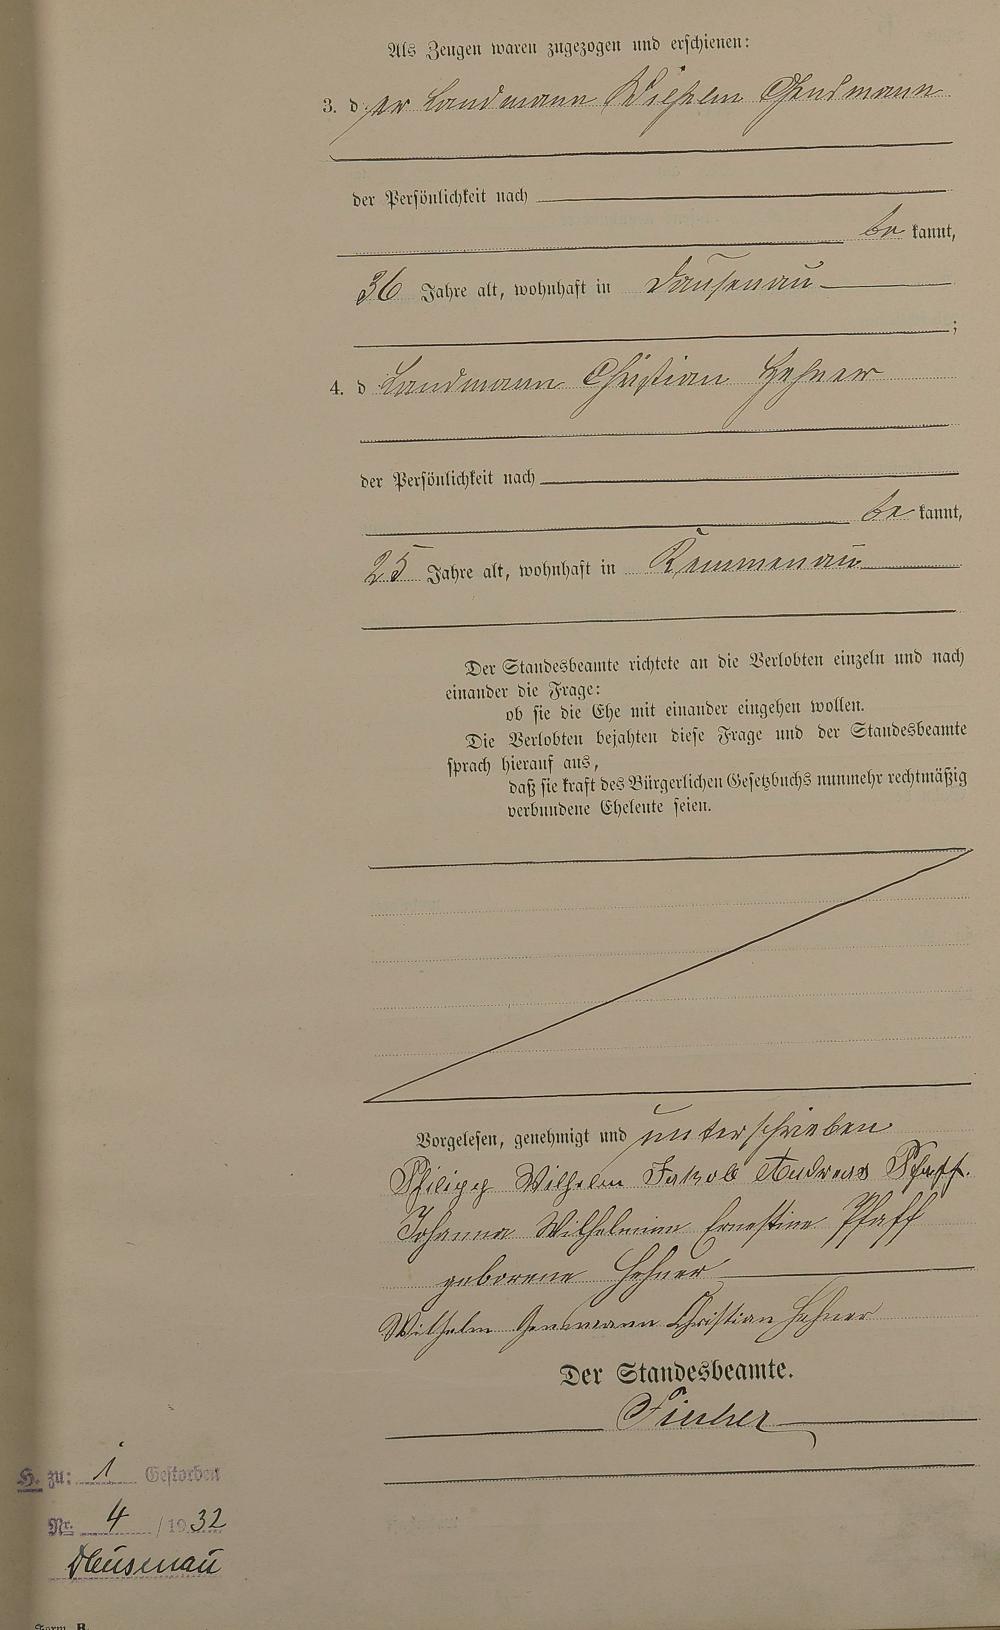 Als Zeugen waren zugezogen und erschienen:
3. der Landmann Wilhelm
der Persönlichkeit nach
bekannt,
36 Jahre alt, wohnhaft in Dausenau
;
4. d Landmann Christian Hehner
der Persönlichkeit nach
bekannt,
25 Jahre alt, wohnhaft in Kemmenau
Der Standesbeamte richtete an die Verlobten einzeln und nach
einander die Frage:
ob sie die Ehe mit einander eingehen wollen.
Die Verlobten bejahten diese Frage und der Standesbeamte
sprach hierauf aus,
daß sie kraft des Bürgerlichen Gesetzbuchs nunmehr rechtmäßig
verbundene Eheleute seien.
Vorgelesen, genehmigt und unterschrieben
Philipp Wilhelm Jakob Andreas Pfaff.
Johanna Wilhelmine Ernestine Pfaff
geborene Hehner
Wilhelm Christian Hehner
Der Standesbeamte.
H. zu: 1 Gestorben
Nr. 4 / 1932
Dausenau
Form. B.